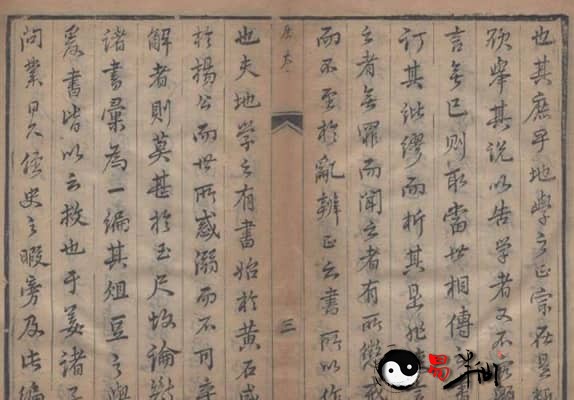 也其庶乎地學之正宗在是
欲舉其說以告學者又不容顯
言無已則取當世相傳之書
訂其紕繆而析其是非
之者無罪而聞之者有所懲戒
而不至於亂辨正之書所以作
三
也夫地學之有書始於黃石盛
於楊公而世所惑溺而不可卒
解者則莫甚於玉尺故論斷
諸書彙為一編其俎豆之與
爰書皆以云救也于姜諸子
問業日久經史之暇旁及此編
易半仙